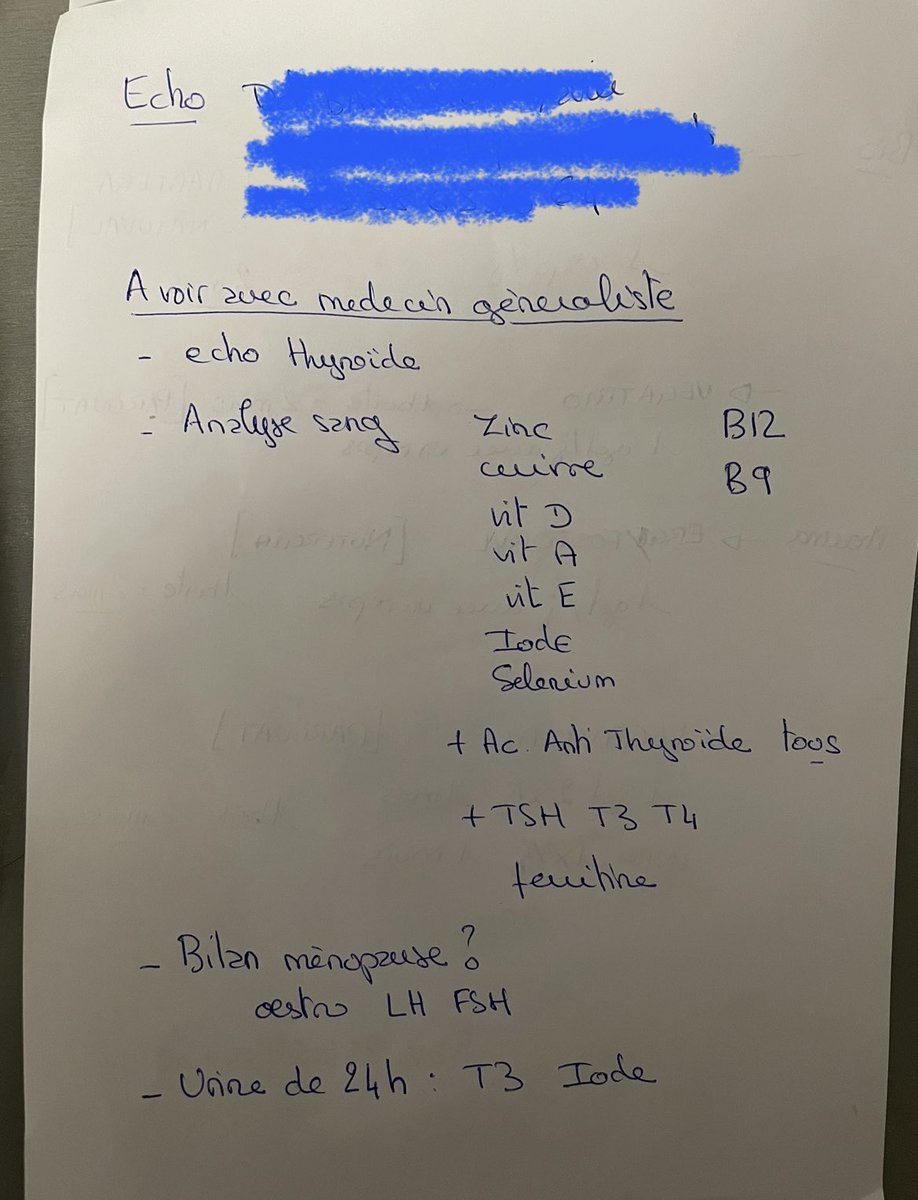 Echo
A voir avec medecin génèraliste
- echo thyroïde
- Analyse sang Zinc B12
cuivre B9
vit D
vit A
vit E
Iode
Selenium
+ Ac. Anti Thyroïde tous
+ TSH T3 T4
ferritine
- Bilan ménopause ?
oestro LH FSH
- Urine de 24h : T3 Iode